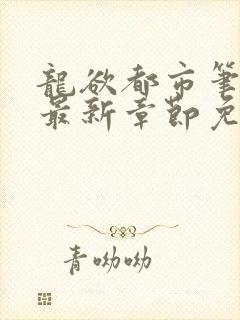 龍欲都市筆
最新章節免
青呦呦